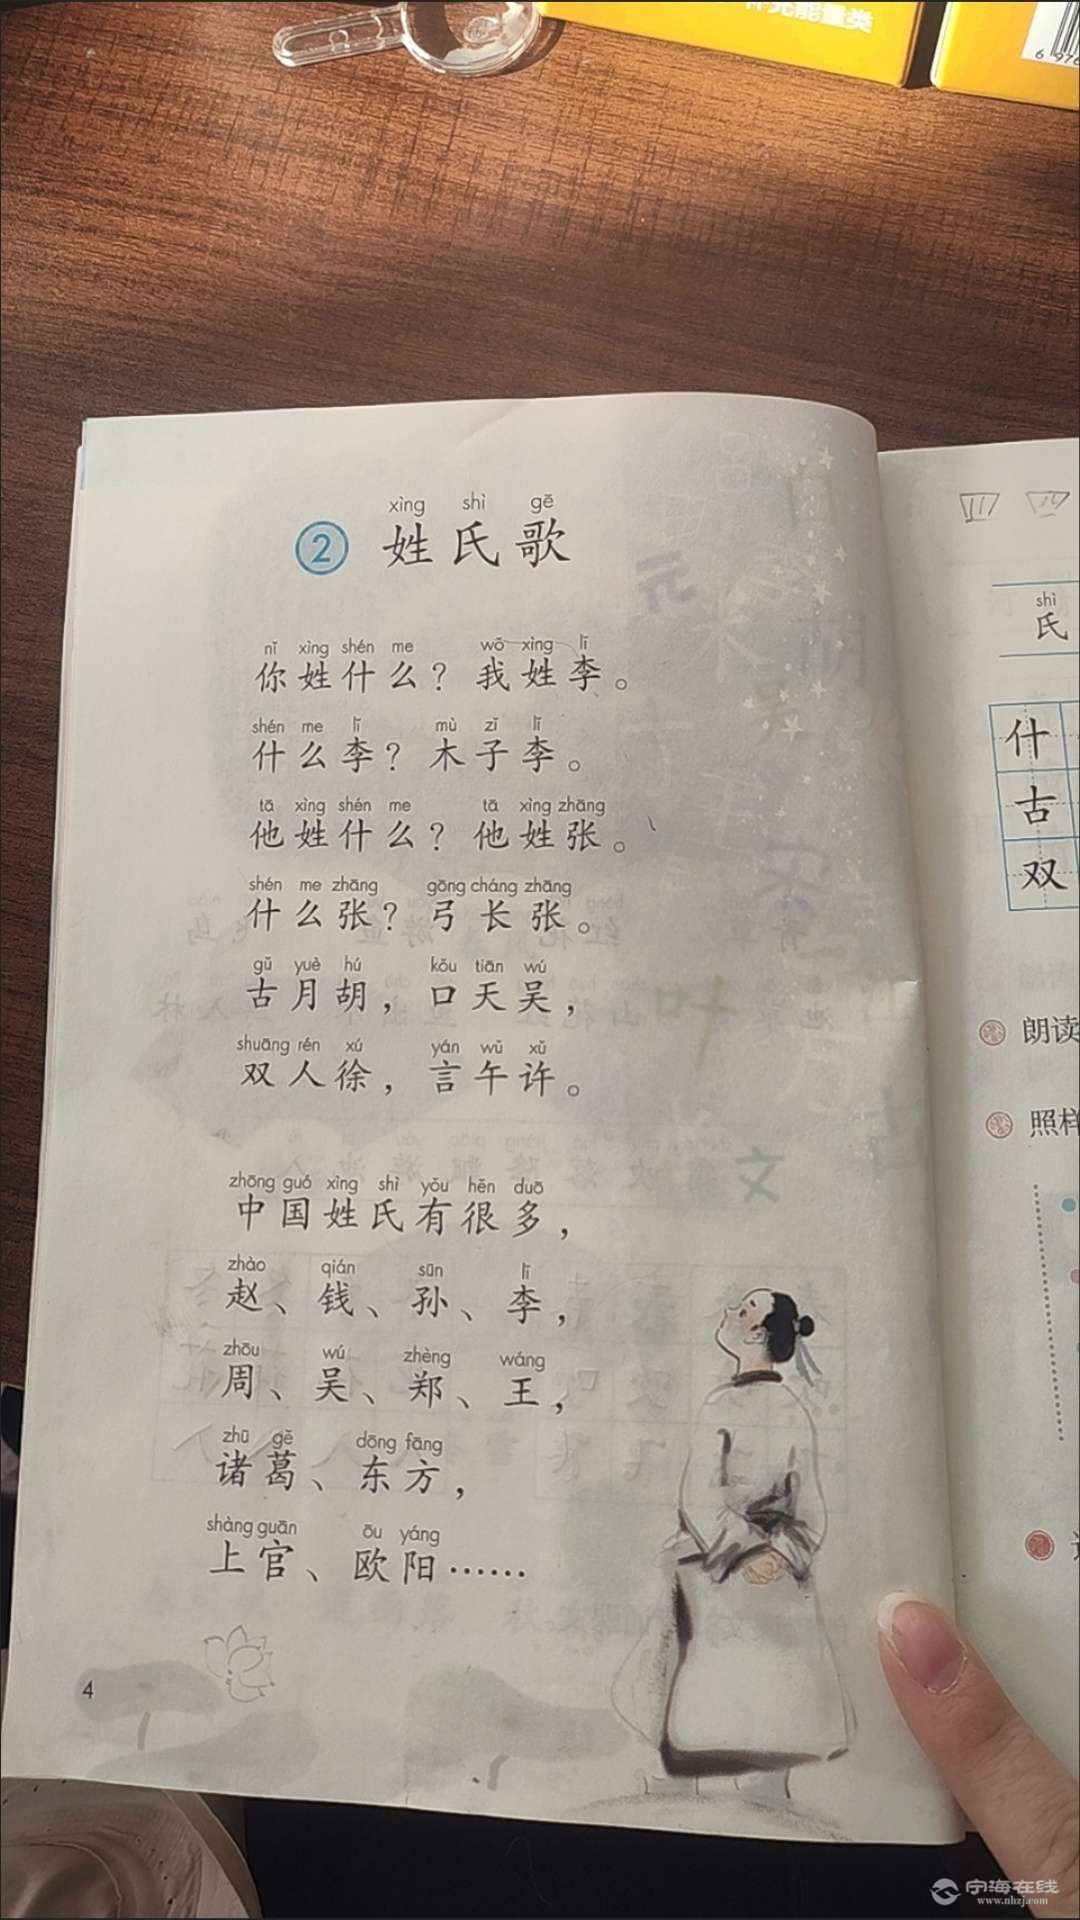 补充能量类
6 976
xìng shì gē
2 姓氏歌
nǐ xìng shén me wǒ xìng lǐ
你姓什么？我姓李。
shén me lǐ mù zǐ lǐ
什么李？木子李。
tā xìng shén me tā xìng zhāng
他姓什么？他姓张。
shén me zhāng gōng cháng zhāng
什么张？弓长张。
gǔ yuè hú kǒu tiān wú
古月胡，口天吴，
shuāng rén xú yán wǔ xǔ
双人徐，言午许。
zhōng guó xìng shì yǒu hěn duō
中国姓氏有很多，
zhào qián sūn lǐ
赵、钱、孙、李，
zhōu wú zhèng wáng
周、吴、郑、王，
zhū gě dōng fāng
诸葛、东方，
shàng guān ōu yáng
上官、欧阳……
4
元
叶
文
shì
氏
什
古
双
朗读
照样
宁海在线
www.nhzj.com